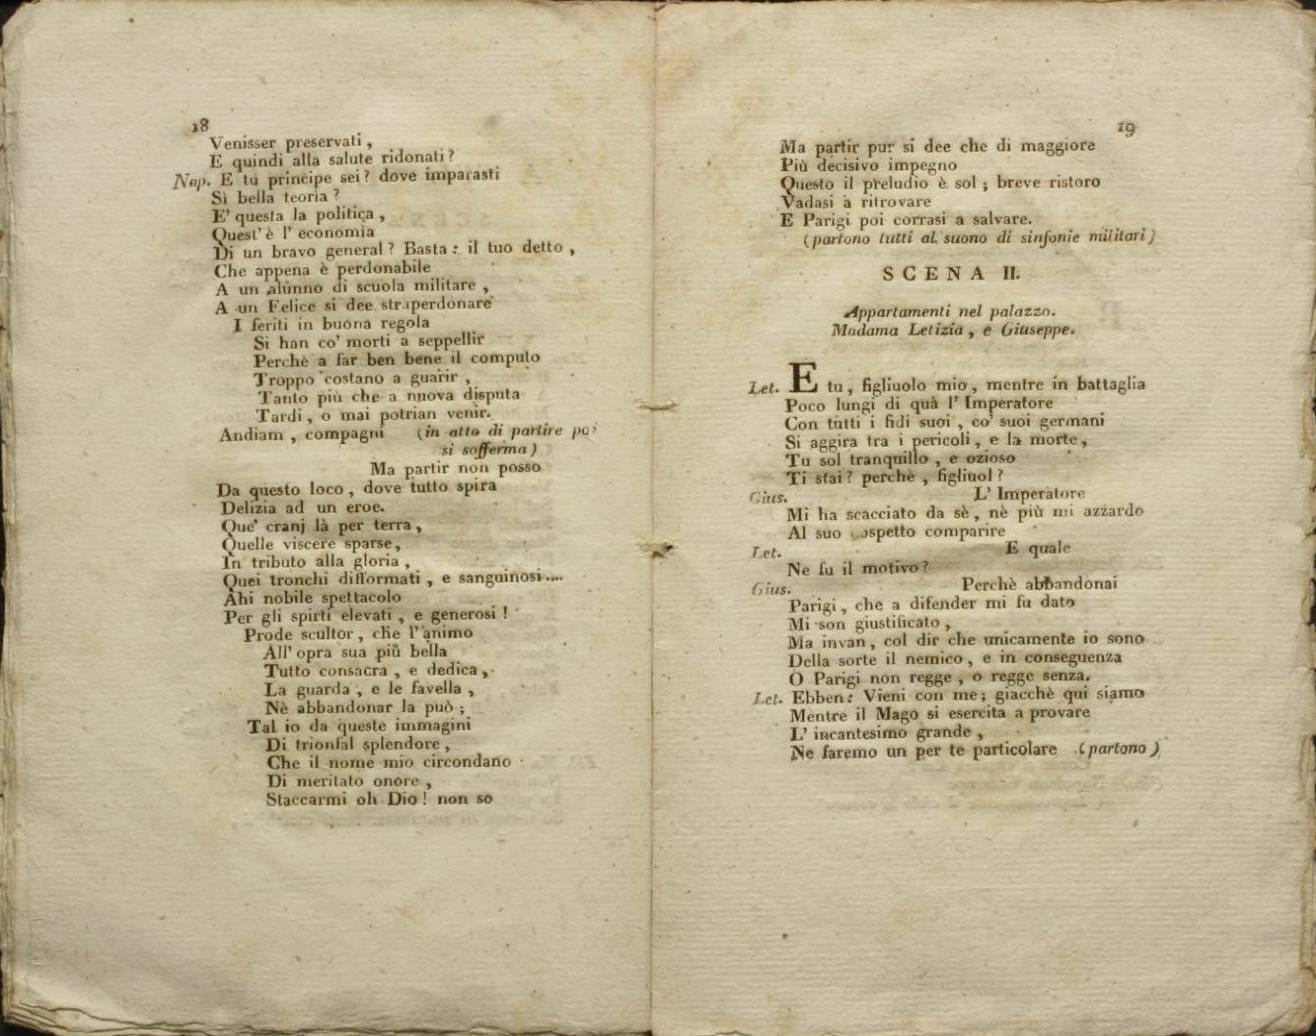 18
Venisser preservati ,
E quindi alla salute ridonati ?
Nap. E tu principe sei ? dove imparasti
Sì bella teoria ?
E' questa la politica ,
Quest' è l' economia
Di un bravo general ? Basta : il tuo detto ,
Che appena è perdonabile
A un alunno di scuola militare ,
A un Felice si dee straperdonare
I feriti in buona regola
Si han co' morti a seppellir
Perchè a far ben bene il computo
Troppo costano a guarir ,
Tanto più che a nuova disputa
Tardi , o mai potrian venir.
Andiam , compagni (in atto di partire poi
si sofferma )
Ma partir non posso
Da questo loco , dove tutto spira
Delizia ad un eroe.
Que' cranj là per terra ,
Quelle viscere sparse,
In tributo alla gloria ,
Quei tronchi difformati , e sanguinosi....
Ahi nobile spettacolo
Per gli spirti elevati , e generosi !
Prode scultor , che l' animo
All' opra sua più bella
Tutto consacra , e dedica ,
La guarda , e le favella ,
Nè abbandonar la può ;
Tal io da queste immagini
Di trionfal splendore ,
Che il nome mio circondano
Di meritato onore ,
Staccarmi oh Dio ! non so
19
Ma partir pur si dee che di maggiore
Più decisivo impegno
Questo il preludio è sol ; breve ristoro
Vadasi a ritrovare
E Parigi poi corrasi a salvare.
(partono tutti al suono di sinfonie militari)
SCENA II.
Appartamenti nel palazzo.
Madama Letizia , e Giuseppe.
Let. E tu , figliuolo mio , mentre in battaglia
Poco lungi di quà l' Imperatore
Con tutti i fidi suoi , co' suoi germani
Si aggira tra i pericoli , e la morte ,
Tu sol tranquillo , e ozioso
Ti stai ? perchè , figliuol ?
Gius. L' Imperatore
Mi ha scacciato da sè , nè più mi azzardo
Al suo cospetto comparire
Let. E quale
Ne fu il motivo ?
Gius. Perchè abbandonai
Parigi , che a difender mi fu dato
Mi son giustificato ,
Ma invan , col dir che unicamente io sono
Della sorte il nemico , e in conseguenza
O Parigi non regge , o regge senza.
Let. Ebben : Vieni con me ; giacchè qui siamo
Mentre il Mago si esercita a provare
L' incantesimo grande ,
Ne faremo un per te particolare (partono )